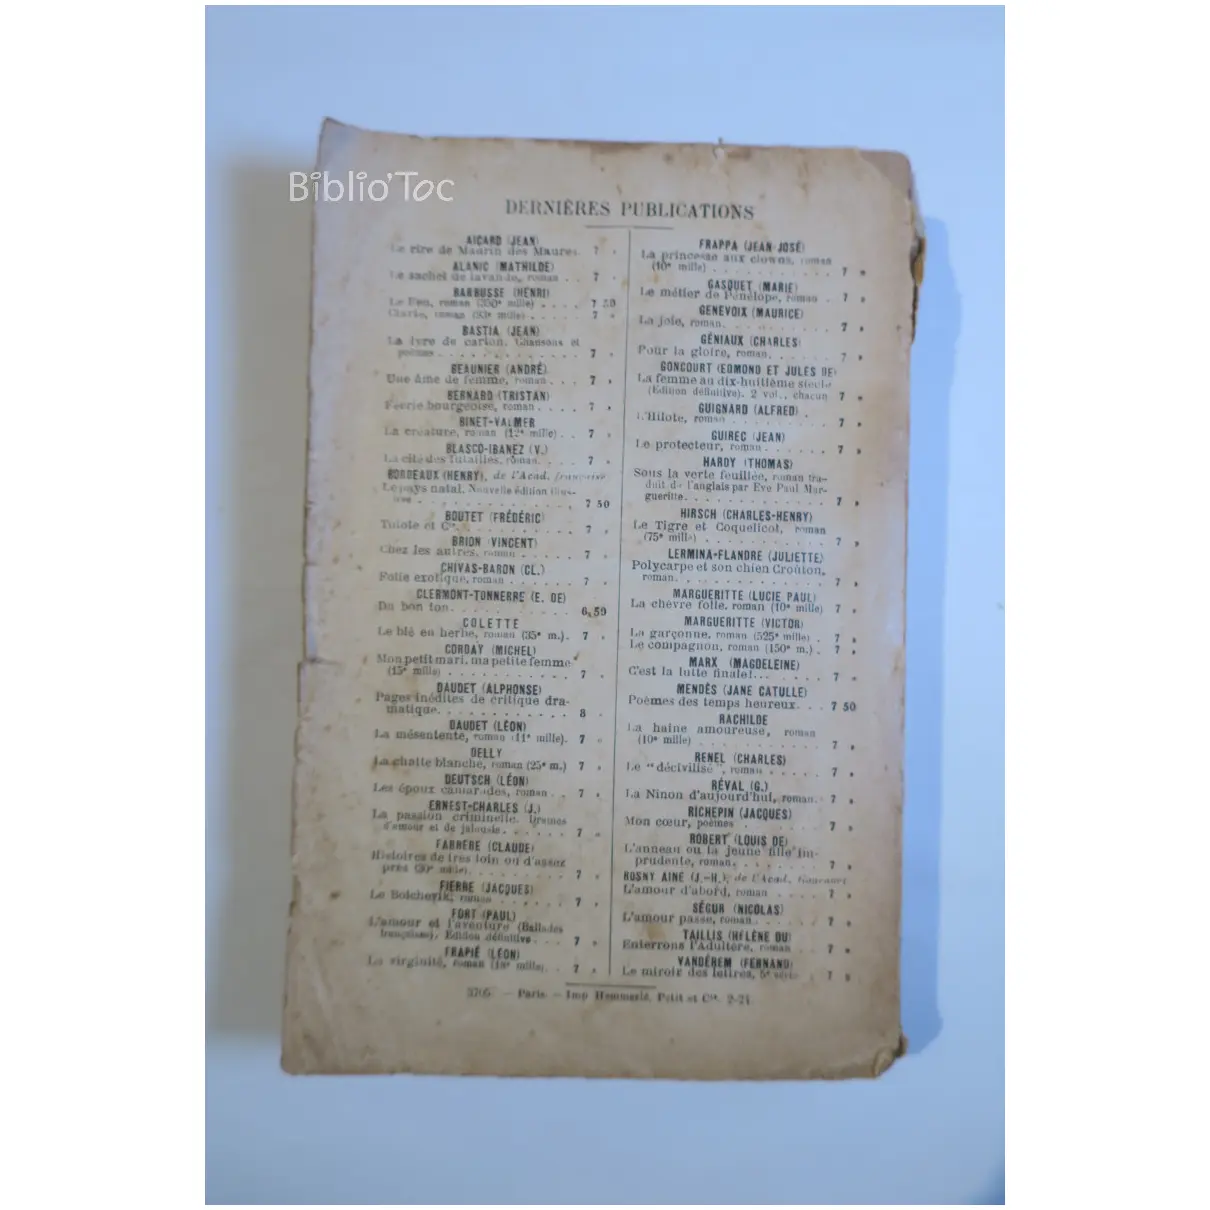 Biblio'Toc
DERNIÈRES PUBLICATIONS
AICARD (JEAN)
Le rire de Maurin des Maures. 7 »
ALANIC (MATHILDE)
Le sachet de lavande, roman . . 7 »
BARBUSSE (HENRI)
Le Feu, roman (350e mille) . . . . 7 50
Clarté, roman (83e mille) . . . . . 7 »
BASTIA (JEAN)
La lyre de carton. Chansons et
poèmes . . . . . . . . . . . . 7 »
BEAUNIER (ANDRÉ)
Une âme de femme, roman . . . 7 »
BERNARD (TRISTAN)
Féerie bourgeoise, roman . . . . 7 »
BINET-VALMER
La créature, roman (12e mille) . . 7 »
BLASCO-IBANEZ (V.)
La cité des futailles, roman. . . . 7 »
BORDEAUX (HENRY), de l'Acad. française
Le pays natal. Nouvelle édition illus-
trée . . . . . . . . . . . . . 7 50
BOUTET (FRÉDÉRIC)
Tulote et Cie. . . . . . . . . . 7 »
BRION (VINCENT)
Chez les autres, roman . . . . . 7 »
CHIVAS-BARON (CL.)
Folie exotique, roman . . . . . . 7 »
CLERMONT-TONNERRE (E. DE)
Du bon ton. . . . . . . . . . . 6 50
COLETTE
Le blé en herbe, roman (35e m.). 7 »
CORDAY (MICHEL)
Mon petit mari, ma petite femme
(15e mille) . . . . . . . . . . . 7 »
DAUDET (ALPHONSE)
Pages inédites de critique dra-
matique. . . . . . . . . . . . 8 »
DAUDET (LÉON)
La mésentente, roman (11e mille). 7 »
DELLY
La chatte blanche, roman (25e m.) 7 »
DEUTSCH (LÉON)
Les époux camarades, roman . . 7 »
ERNEST-CHARLES (J.)
La passion criminelle. Drames
d'amour et de jalousie. . . . . . 7 »
FARRÈRE (CLAUDE)
Histoires de très loin ou d'assez
près (30e mille). . . . . . . . . 7 »
FIERRE (JACQUES)
Le Bolchevik, roman . . . . . . 7 »
FORT (PAUL)
L'amour et l'aventure (Ballades
françaises). Édition définitive . . . 7 »
FRAPIÉ (LÉON)
La virginité, roman (18e mille). . 7 »
FRAPPA (JEAN-JOSÉ)
La princesse aux clowns, roman
(10e mille) . . . . . . . . . . . 7 »
GASQUET (MARIE)
Le métier de Pénélope, roman . 7 »
GENEVOIX (MAURICE)
La joie, roman. . . . . . . . . . 7 »
GÉNIAUX (CHARLES)
Pour la gloire, roman. . . . . . 7 »
GONCOURT (EDMOND ET JULES DE)
La femme au dix-huitième siècle
(Édition définitive). 2 vol., chacun 7 »
GUIGNARD (ALFRED)
L'Hilote, roman . . . . . . . . . 7 »
GUIREC (JEAN)
Le protecteur, roman . . . . . . 7 »
HARDY (THOMAS)
Sous la verte feuillée, roman tra-
duit de l'anglais par Eve Paul Mar-
gueritte. . . . . . . . . . . . . 7 »
HIRSCH (CHARLES-HENRY)
Le Tigre et Coquelicot, roman
(75e mille) . . . . . . . . . . . 7 »
LERMINA-FLANDRE (JULIETTE)
Polycarpe et son chien Croûton,
roman. . . . . . . . . . . . . 7 »
MARGUERITTE (LUCIE PAUL)
La chèvre folle, roman (10e mille) 7 »
MARGUERITTE (VICTOR)
La garçonne, roman (525e mille) . 7 »
Le compagnon, roman (150e m.) . 7 »
MARX (MAGDELEINE)
C'est la lutte finale!... . . . . . 7 »
MENDÈS (JANE CATULLE)
Poèmes des temps heureux. . . 7 50
RACHILDE
La haine amoureuse, roman
(10e mille) . . . . . . . . . . . 7 »
RENEL (CHARLES)
Le "décivilisé", roman . . . . . 7 »
RÉVAL (G.)
La Ninon d'aujourd'hui, roman. 7 »
RICHEPIN (JACQUES)
Mon cœur, poèmes . . . . . . . 7 »
ROBERT (LOUIS DE)
L'anneau ou la jeune fille im-
prudente, roman. . . . . . . . 7 »
ROSNY AINÉ (J.-H.), de l'Acad. Goncourt
L'amour d'abord, roman . . . . 7 »
SÉGUR (NICOLAS)
L'amour passe, roman. . . . . . 7 »
TAILLIS (HÉLÈNE DU)
Enterrons l'Adultère, roman . . 7 »
VANDÉREM (FERNAND)
Le miroir des lettres, 5e série . . 7 »
— Paris. — Imp Hemmerlé, Petit et Cie.